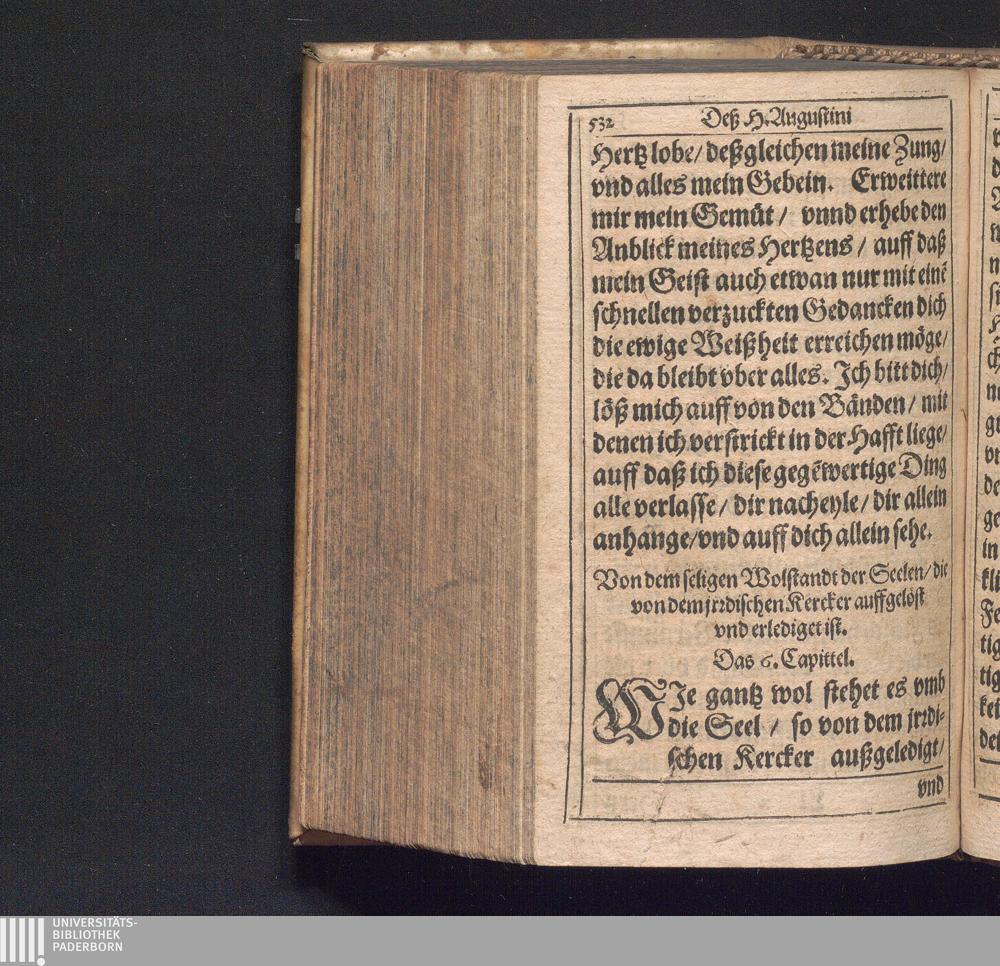 532 Deß H. Augustini
Hertz lobe/ deßgleichen meine Zung/
vnd alles mein Gebein. Erweittere
mir mein Gemüt / vnnd erhebe den
Anblick meines Hertzens / auff daß
mein Geist auch etwan nur mit einẽ
schnellen verzuckten Gedancken dich
die ewige Weißheit erreichen möge/
die da bleibt vber alles. Ich bitt dich/
löß mich auff von den Bänden / mit
denen ich verstrickt in der Hafft liege/
auff daß ich diese gegẽwertige Ding
alle verlasse / dir nacheyle / dir allein
anhange/vnd auff dich allein sehe.
Von dem seligen Wolstandt der Seelen/ die
von dem jrrdischen Kercker auffgelöst
vnd erlediget ist.
Das 6. Capittel.
WJe gantz wol stehet es vmb
die Seel / so von dem jrrdi-
schen Kercker außgeledigt/
vnd
UNIVERSITÄTS-
BIBLIOTHEK
PADERBORN